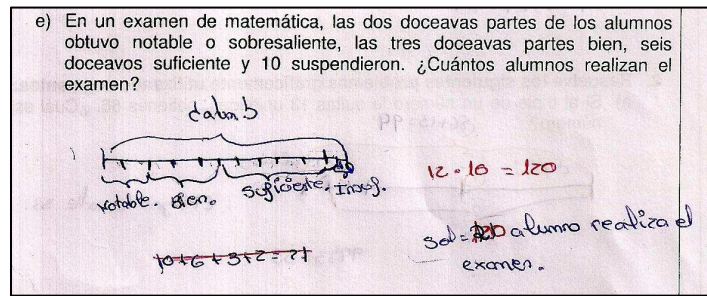 e) En un examen de matemática, las dos doceavas partes de los alumnos
obtuvo notable o sobresaliente, las tres doceavas partes bien, seis
doceavos suficiente y 10 suspendieron. ¿Cuántos alumnos realizan el
examen?
12 · 10 = 120
Notable. Bien. Suficiente. Insuf.
Sol = 120 alumno realiza el
examen.
10+6+3+2=21